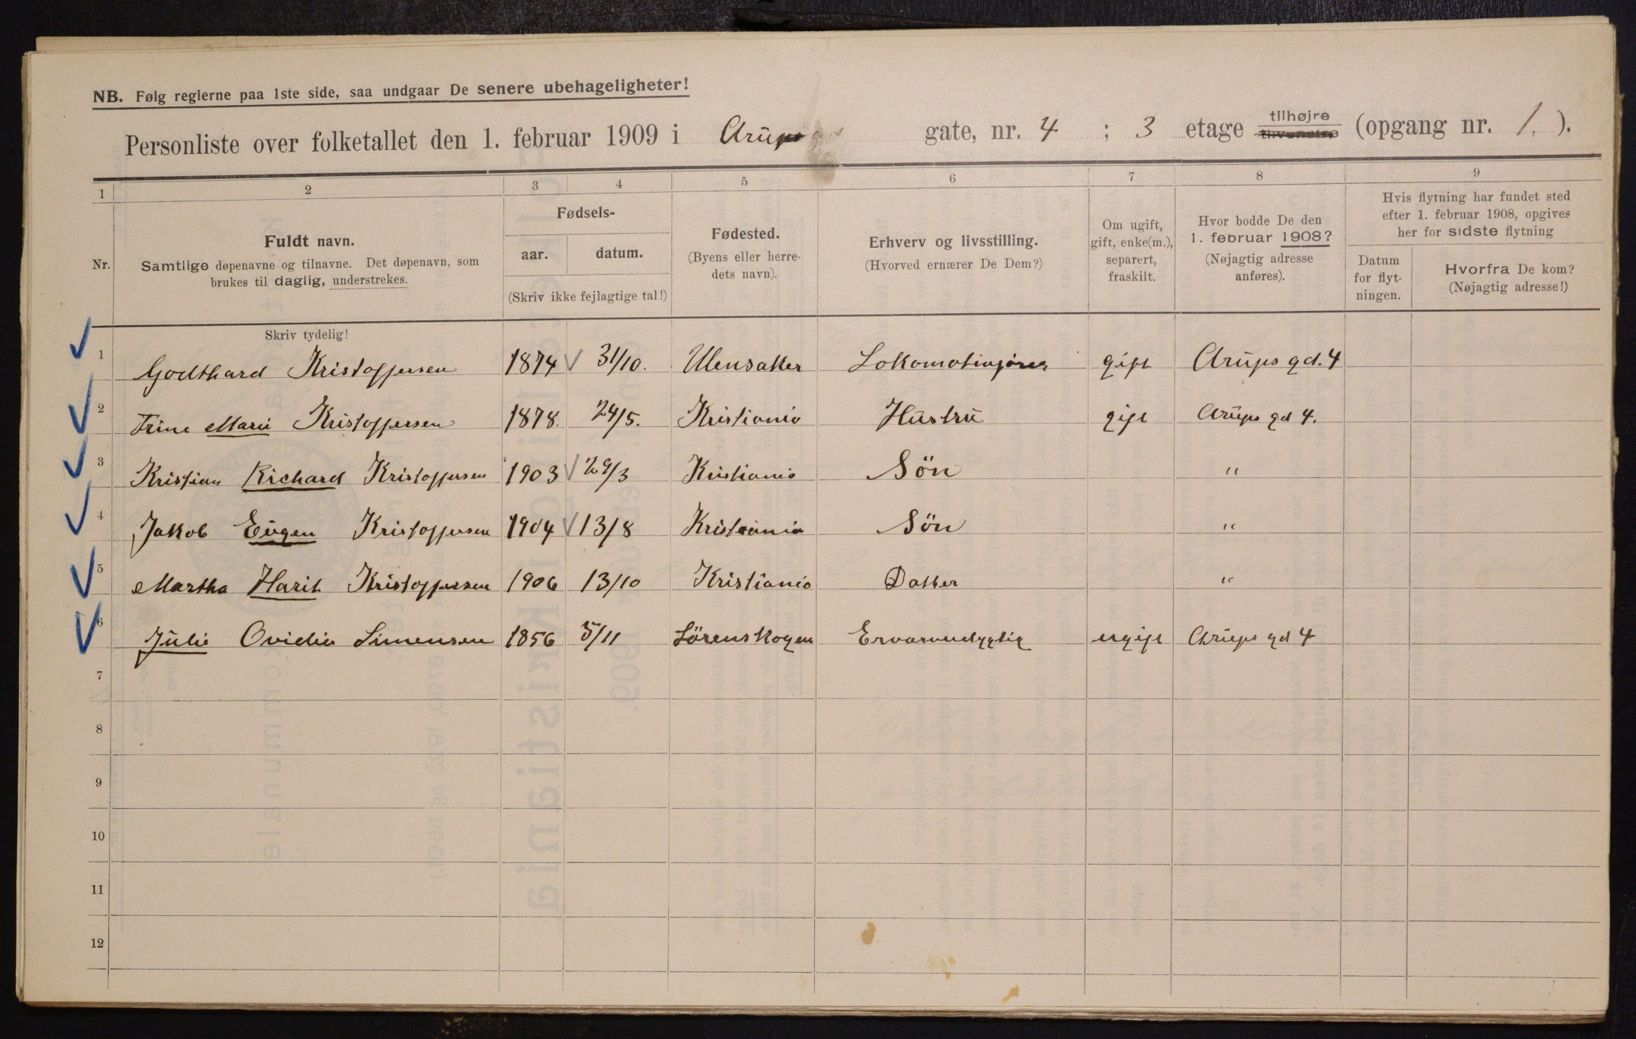 NB. Følg reglerne paa 1ste side, saa undgaar De senere ubehageligheter!
Personliste over folketallet den 1. februar 1909 i Arups gate, nr. 4 ; 3 etage tilhøjre tilvenstre (opgang nr. 1.).
1 2 3 4 5 6 7 8 9
Nr.
Fuldt navn.
Samtlige døpenavne og tilnavne. Det døpenavn, som
brukes til daglig, understrekes.
Fødsels-
aar. datum.
(Skriv ikke fejlagtige tal!)
Fødested.
(Byens eller herre-
dets navn).
Erhverv og livsstilling.
(Hvorved ernærer De Dem?)
Om ugift,
gift, enke(m.),
separert,
fraskilt.
Hvor bodde De den
1. februar 1908?
(Nøjagtig adresse
anføres).
Hvis flytning har fundet sted
efter 1. februar 1908, opgives
her for sidste flytning
Datum
for flyt-
ningen.
Hvorfra De kom?
(Nøjagtig adresse!)
Skriv tydelig!
1 Godthard Kristoffersen 1874 31/10. Ullensaker gift Arups gd. 4
2 Trine Marie Kristoffersen 1878. 24/5. Kristiania Hustru gift Arups gd 4.
3 Kristian Richard Kristoffersen 1903 29/3 Kristiania Søn "
4 Jakob Eugen Kristoffersen 1904 13/8 Kristiania Søn "
5 Martha Harit Kristoffersen 1906 13/10 Kristiania Datter "
6 Julie Ovidia Simensen 1856 5/11 Sørenskogen ugift Arups gd 4
7
8
9
10
11
12